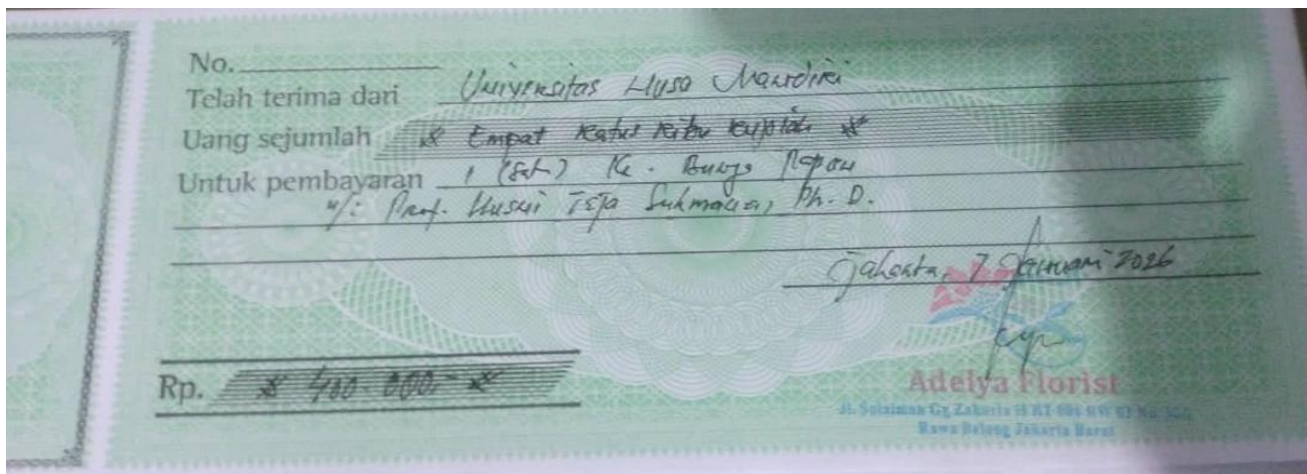 No.
Telah terima dari Universitas Nusa Mandiri
Uang sejumlah # Empat Ratus Ribu Rupiah #
Untuk pembayaran 1 (Sat) Kr. Bunga Papan
u/: Prof. Teja Sukmana, Ph. D.
Jakarta, 7 Januari 2026
Rp. # 400.000.- #
Adelya Florist
Jl. Sulaiman Gg Zakaria RT RW
Rawa Belong Jakarta Barat